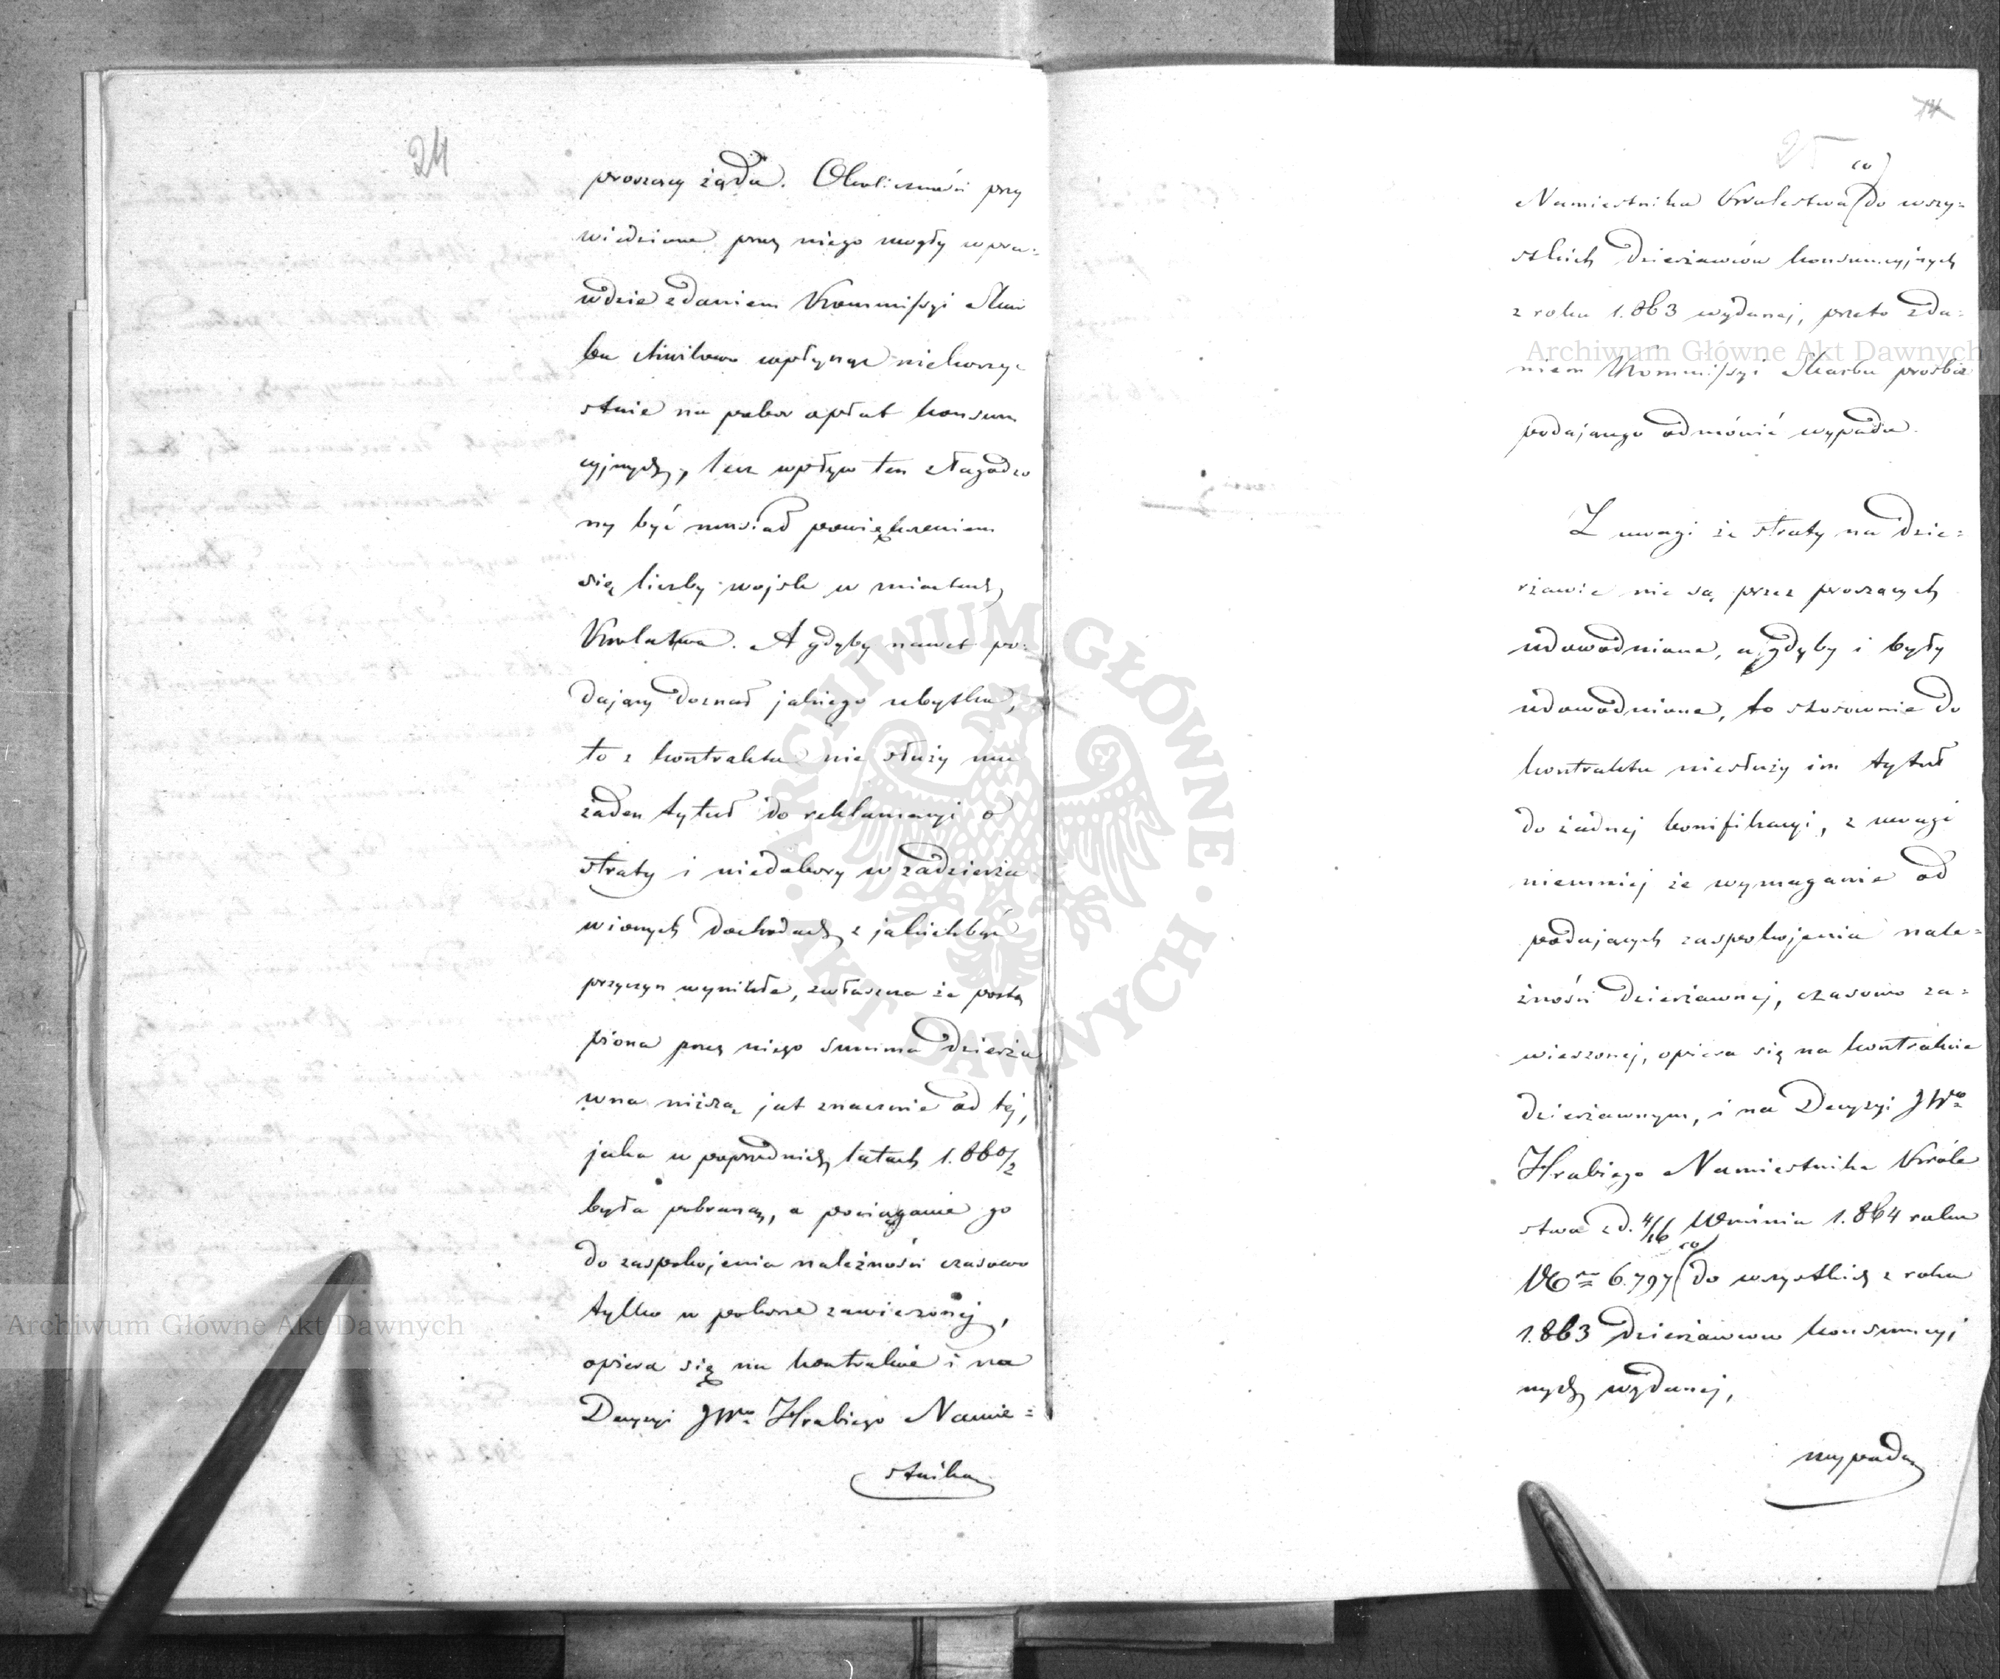 24
proszący żąda. Okoliczności przy
wiedzione przez niego mogły wpra=
wdzie zdaniem Kommissyi Skar
bu chwilowo wpłynąć niekorzy=
stnie na pobor opłat konsum
cyjnych, lecz wpływ ten złagodzo
ny być musiał powiększeniem
się liczby wojsk w miastach
Królestwa. A gdyby nawet po=
dający doznał jakiego ubytku,
to z kontraktu nie służy mu
żaden tytuł do reklamacyi o
straty i niedobory w zadzierża
wionych dochodach z jakichbądź
przyczyn wynikłe, zwłaszcza że postą
piona przez niego summa dzierża
wna niższą jest znacznie od tej,
jaka w poprzednich latach 1.860/2
była pobraną, a pociąganie go
do zaspokojenia należności czasowo
tylko w poborze zawieszonej,
opiera się na kontrakcie i na
Decyzyi JWo Hrabiego Namie=
stnika
25
14
co
Namiestnika Królestwa (do wszy=
stkich Dzierżawców konsumcyjnych
z roku 1.863 wydanej, przeto zda=
niem Kommissyi Skarbu prośbie
podającego odmówić wypada.
Z uwagi że straty na dzie=
rżawie nie są przez proszących
udowodnione, a gdyby i były
udowodnione, to stosownie do
kontraktu niesłuży im tytuł
do żadnej bonifikacyi, z uwagi
niemniej że wymaganie od
podających zaspokojenia nale=
żności dzierżawnej, czasowo za=
wieszonej, opiera się na kontrakcie
dzierżawnym, i na Decyzyi JWo
Hrabiego Namiestnika Króle
stwa z d. 4/16 Września 1.864 roku
co
No 6.797 (do wszystkich z roku
1.863 Dzierżawców konsumcyj
nych wydanej,
wypada
Archiwum Główne Akt Dawnych
Archiwum Główne Akt Dawnych
ARCHIWUM GŁÓWNE · AKT DAWNYCH ·